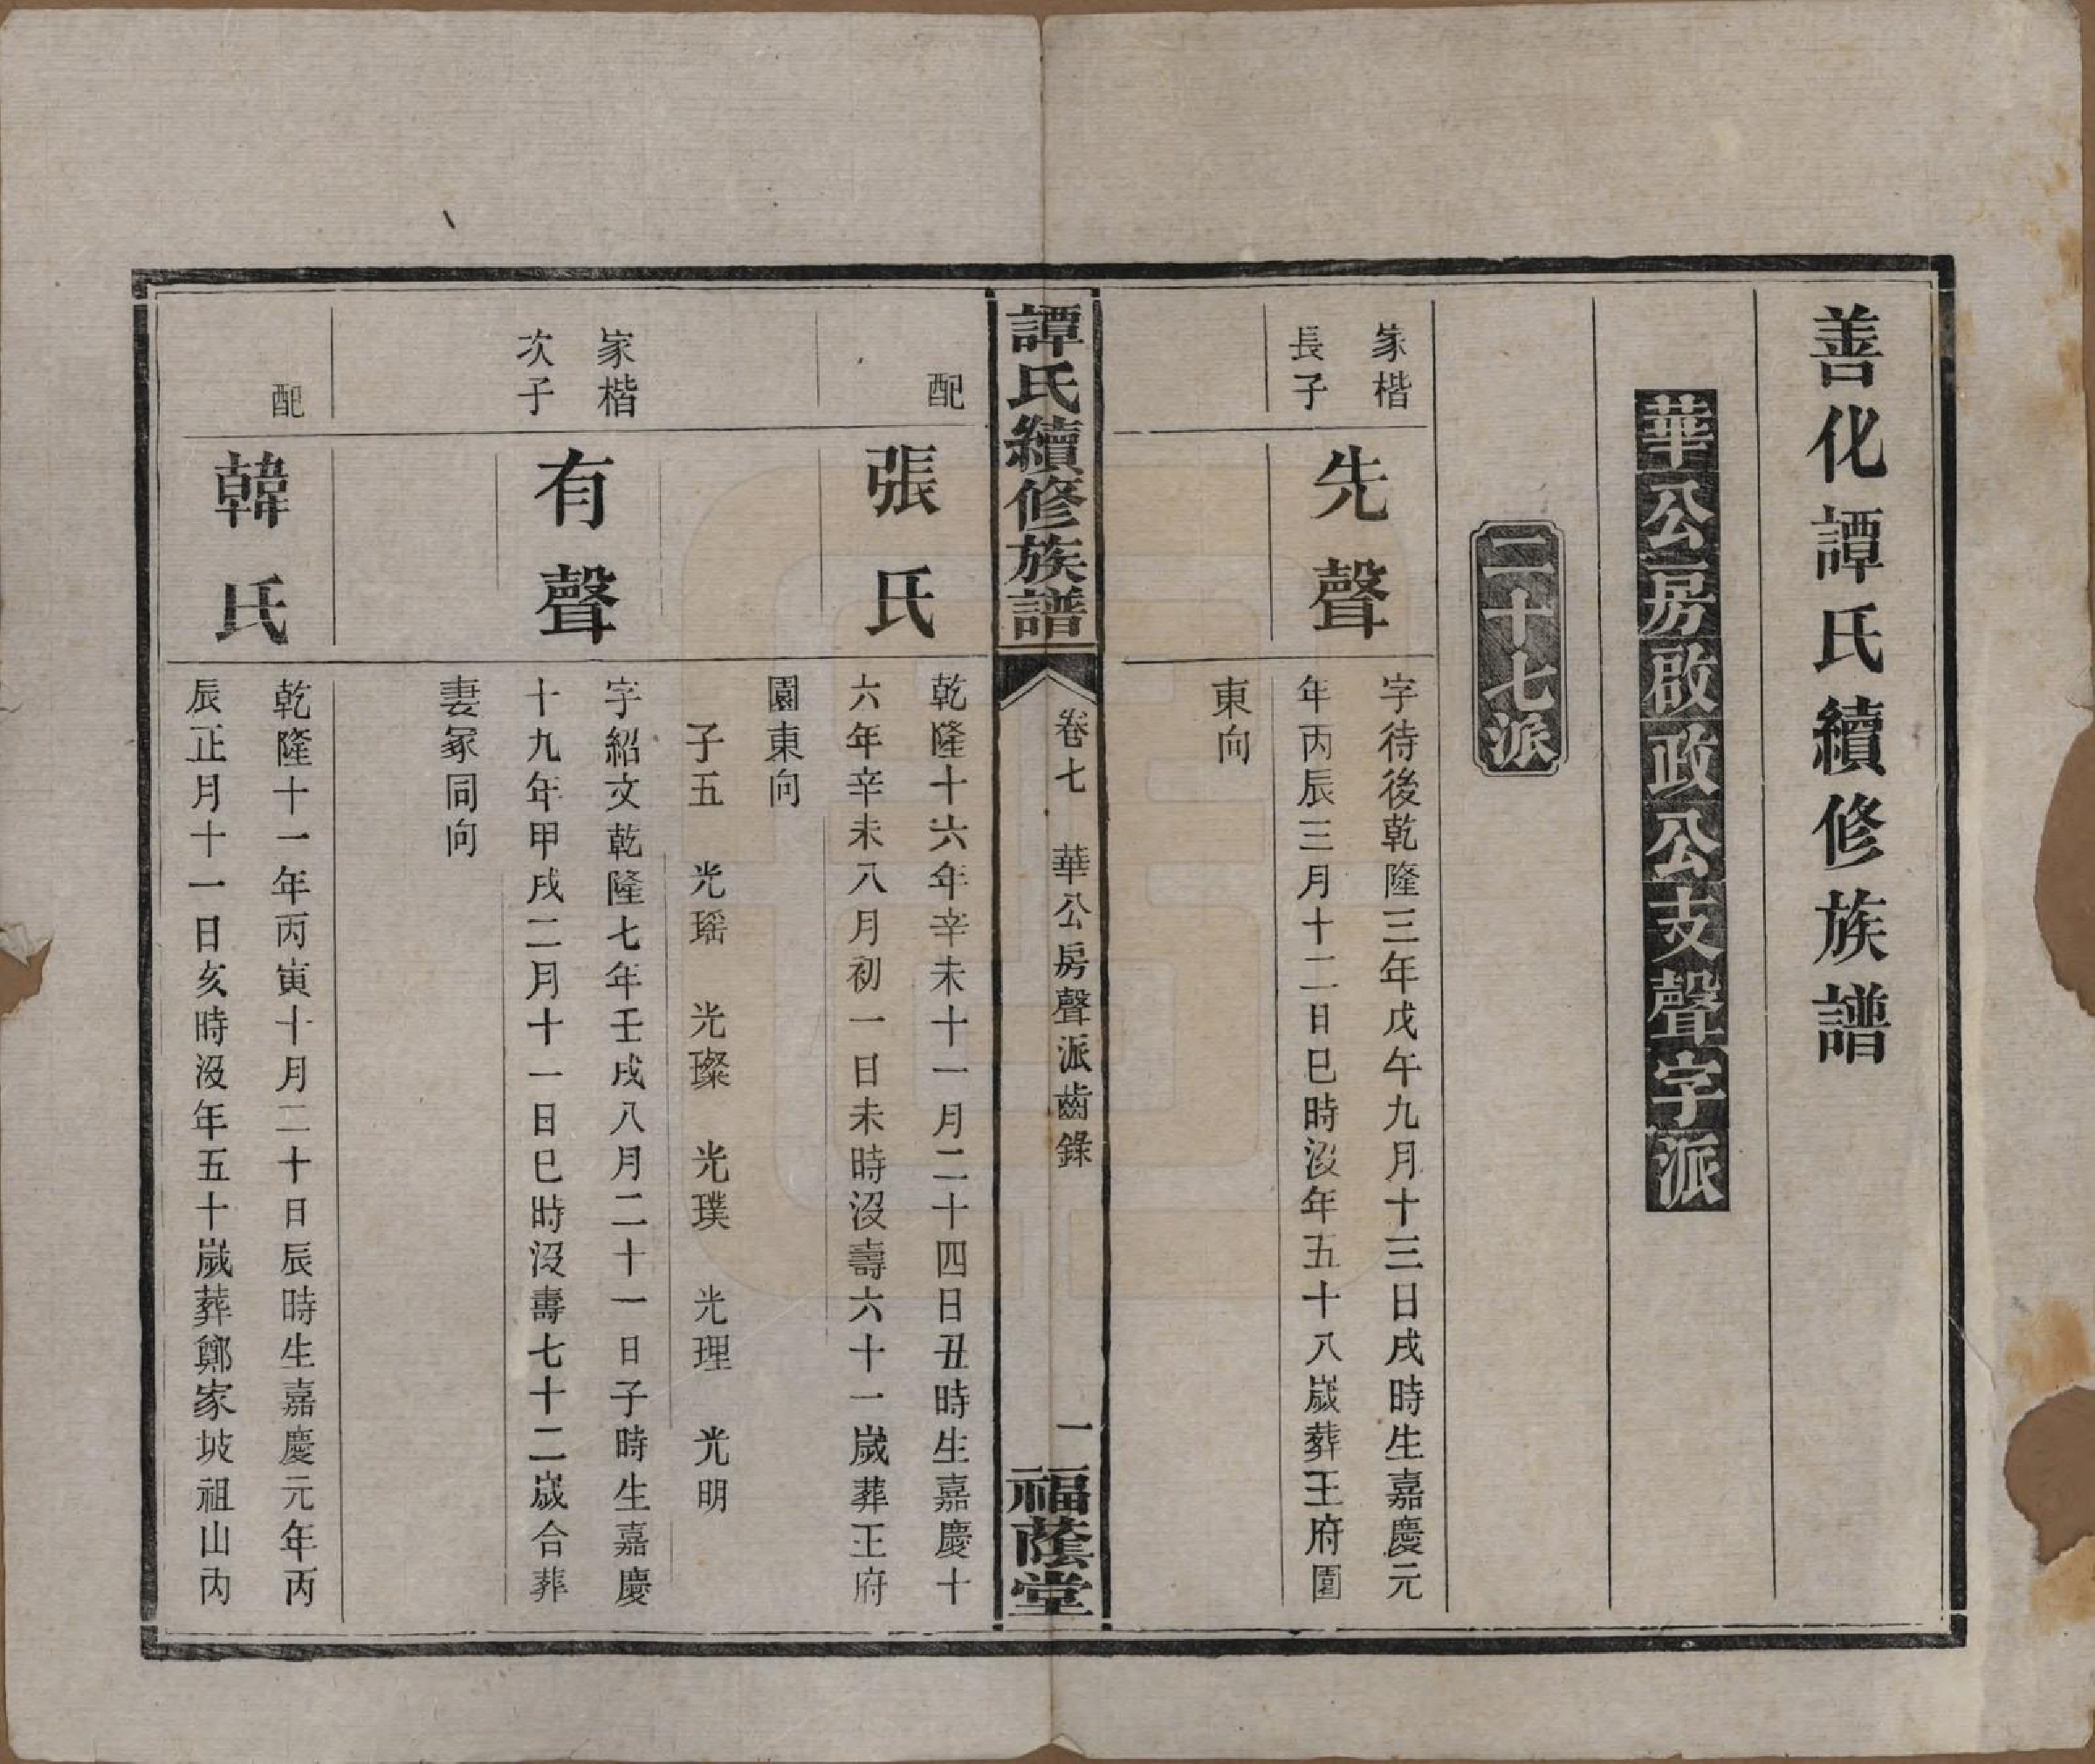 善化譚氏續修族譜
華公房啟政公支聲字派
二十七派
家楷
長子
先聲
字待後乾隆三年戊午九月十三日戌時生嘉慶元
年丙辰三月十二日巳時沒年五十八歲葬王府園
東向
譚氏續修族譜
卷七 華公房聲派齒錄
一
福蔭堂
配
張氏
乾隆十六年辛未十一月二十四日丑時生嘉慶十
六年辛未八月初一日未時沒壽六十一歲葬王府
園東向
子五 光瑶 光璨 光璞 光理 光明
家楷
次子
有聲
字紹文乾隆七年壬戌八月二十一日子時生嘉慶
十九年甲戌二月十一日巳時沒壽七十二歲合葬
妻冢同向
配
韓氏
乾隆十一年丙寅十月二十日辰時生嘉慶元年丙
辰正月十一日亥時沒年五十歲葬鄭家坡祖山內